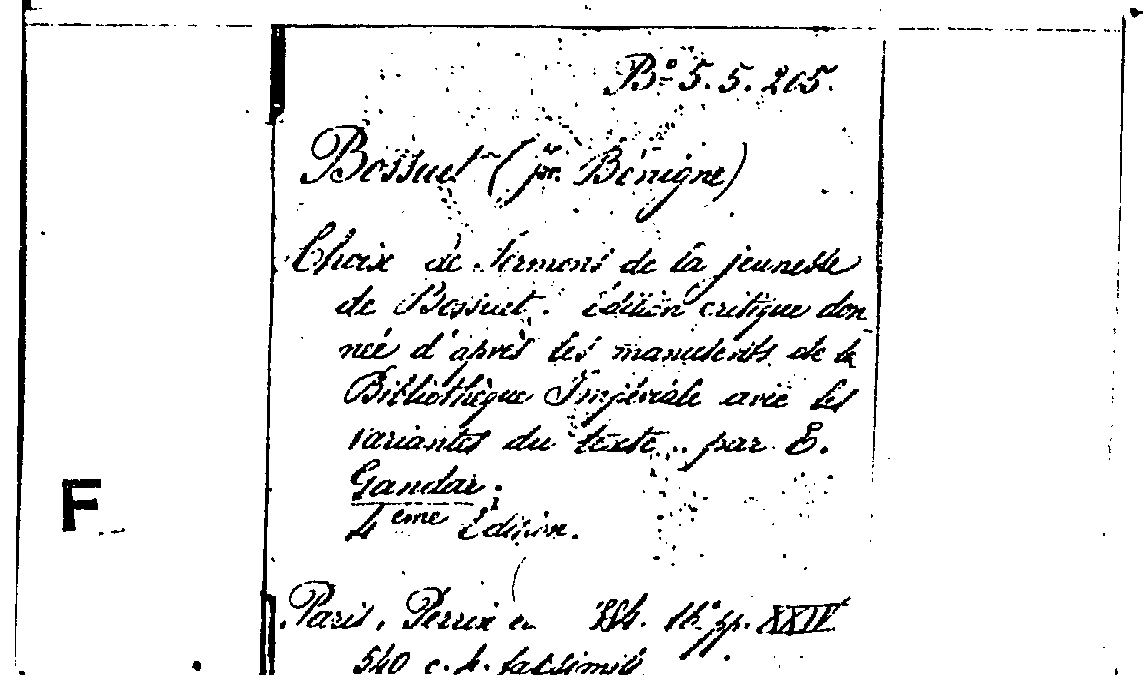 Bº 5.5.205.
Bossuet (Jqs. Bénigne)
Choix de Sermons de la jeunesse
de Bossuet. Édition critique don
née d'après les manuscrits de la
Bibliothèque Impériale avec les
variantes du texte .. par E.
Gandar.
4ème Édition.
F
Paris, Perrin 16º pp. XXIV
540 c. 4. facsimili